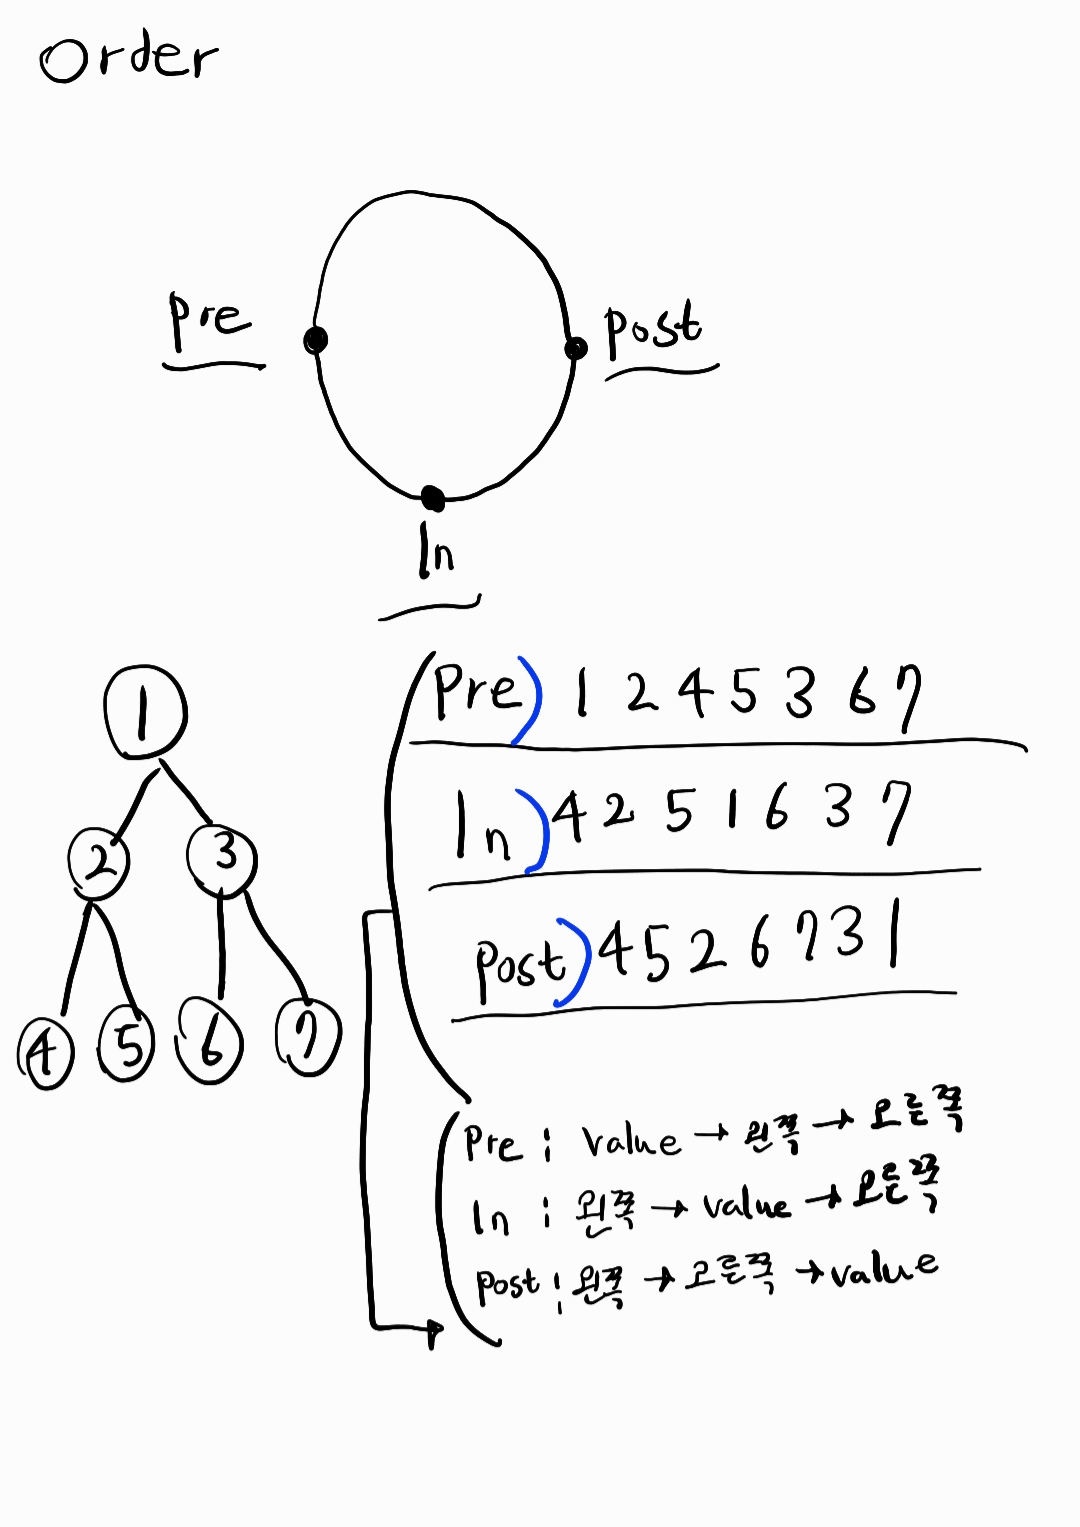 Order
Pre
Post
In
1
2 3
4 5 6 7
Pre) 1 2 4 5 3 6 7
In) 4 2 5 1 6 3 7
Post) 4 5 2 6 7 3 1
Pre : Value →왼쪽 →오른쪽
In : 왼쪽 → value → 오른쪽
Post : 왼쪽 → 오른쪽 → value